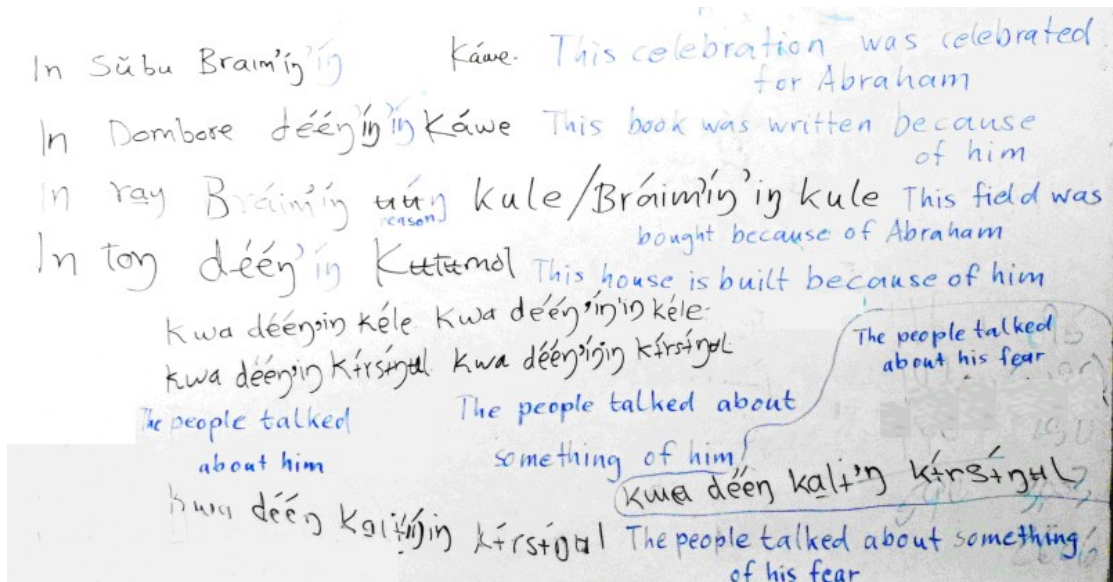 In Sǔbu Braim'íŋ'íŋ Káwe. This celebration was celebrated
for Abraham
In Dombore dééŋ'íŋ'íŋ Káwe This book was written because
of him
In ra̱y Bráim'íŋ ʉʉ́ŋ kule/Bráim'íŋ'iŋ kule This field was
reason
bought because of Abraham
In toŋ dééŋ'íŋ Kʉtʉmol This house is built because of him
Kwa dééŋ'iŋ kéle. Kwa dééŋ'íŋ'iŋ kéle.
Kwa dééŋ'iŋ kɨ́rsɨ́ŋʉl. Kwa dééŋ'íŋiŋ kɨ́rsɨ́ŋʉl
The people talked
about his fear
The people talked
about him
The people talked about
something of him
Kwa dééŋ ka̱lɨ'ŋ kɨ́rsɨ́ŋʉl
Kwa dééŋ kɨ́rsɨŋʉl
The people talked about something
of his fear